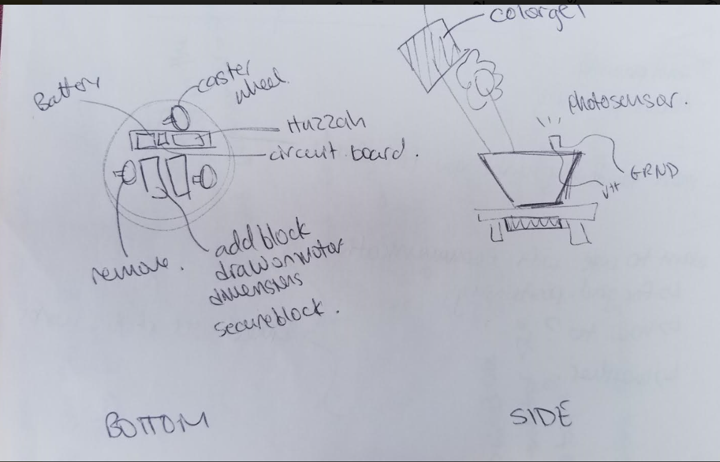 colorgel
Battery
caster
wheel
Huzzah
circuit board.
photosensor.
GRND
remove.
add block
draw on motor
dimensions
secure block.
BOTTOM
SIDE